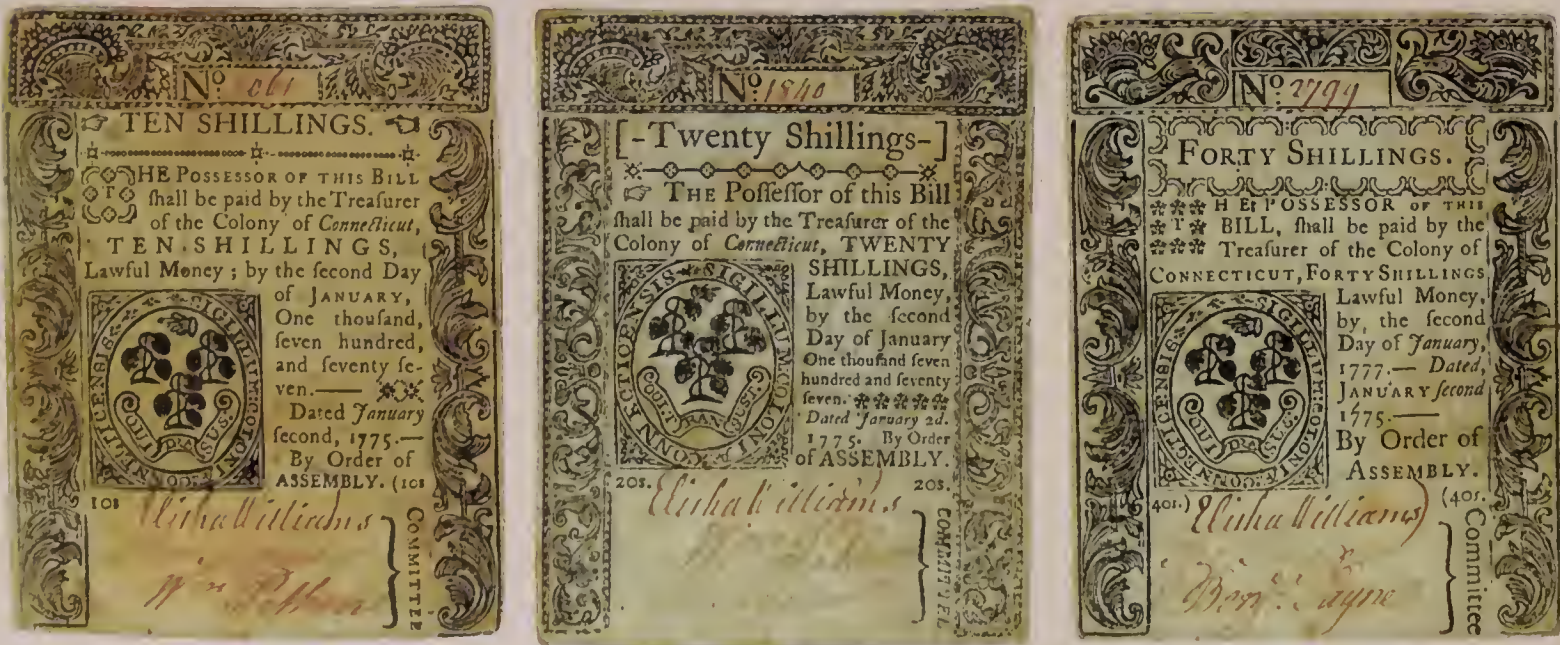 No. 061
TEN SHILLINGS.
THE POSSESSOR OF THIS BILL
ſhall be paid by the Treaſurer
of the Colony of Connecticut,
TEN SHILLINGS,
Lawful Money ; by the ſecond Day
of JANUARY,
One thouſand,
ſeven hundred,
and ſeventy ſe-
ven.—
Dated January
ſecond, 1775.—
By Order of
ASSEMBLY. (10s
10s
SIGILLUM COLONIÆ CONNECTICENSIS
QUI TRA SUS
Elisha Williams
Wm
COMMITTEE
No. 1840
[-Twenty Shillings-]
THE Poſſeſſor of this Bill
ſhall be paid by the Treaſurer of the
Colony of Connecticut, TWENTY
SHILLINGS,
Lawful Money,
by the ſecond
Day of January
One thouſand ſeven
hundred and ſeventy
ſeven.
Dated January 2d.
1775. By Order
of ASSEMBLY.
SIGILLUM COLONIÆ CONNECTICENSIS
QUI TRAN SUST
20s. 20s.
Elisha Williams
COMMITTEE
No. 2799
FORTY SHILLINGS.
THE POSSESSOR OF THIS
BILL, ſhall be paid by the
Treaſurer of the Colony of
CONNECTICUT, FORTY SHILLINGS
Lawful Money,
by, the ſecond
Day of January,
1777.— Dated,
JANUARY ſecond
1775.—
By Order of
ASSEMBLY.
SIGILLUM COLONIÆ CONNECTICENSIS
QUI TRA SUS
40s.) (40s.
Elisha Williams
Benj. Payne
Committee